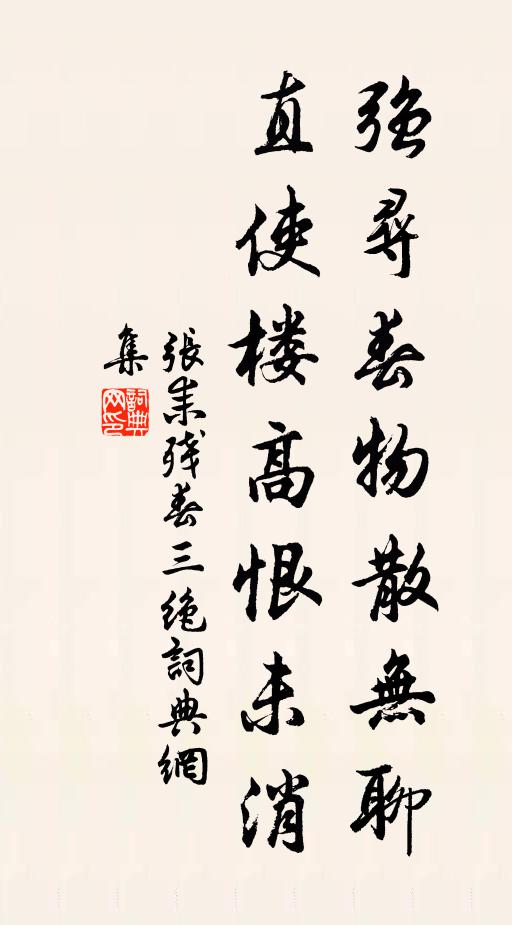 強尋春物散無聊
直使楼高恨未消
張耒残春三绝詞典網
集
詞典网印